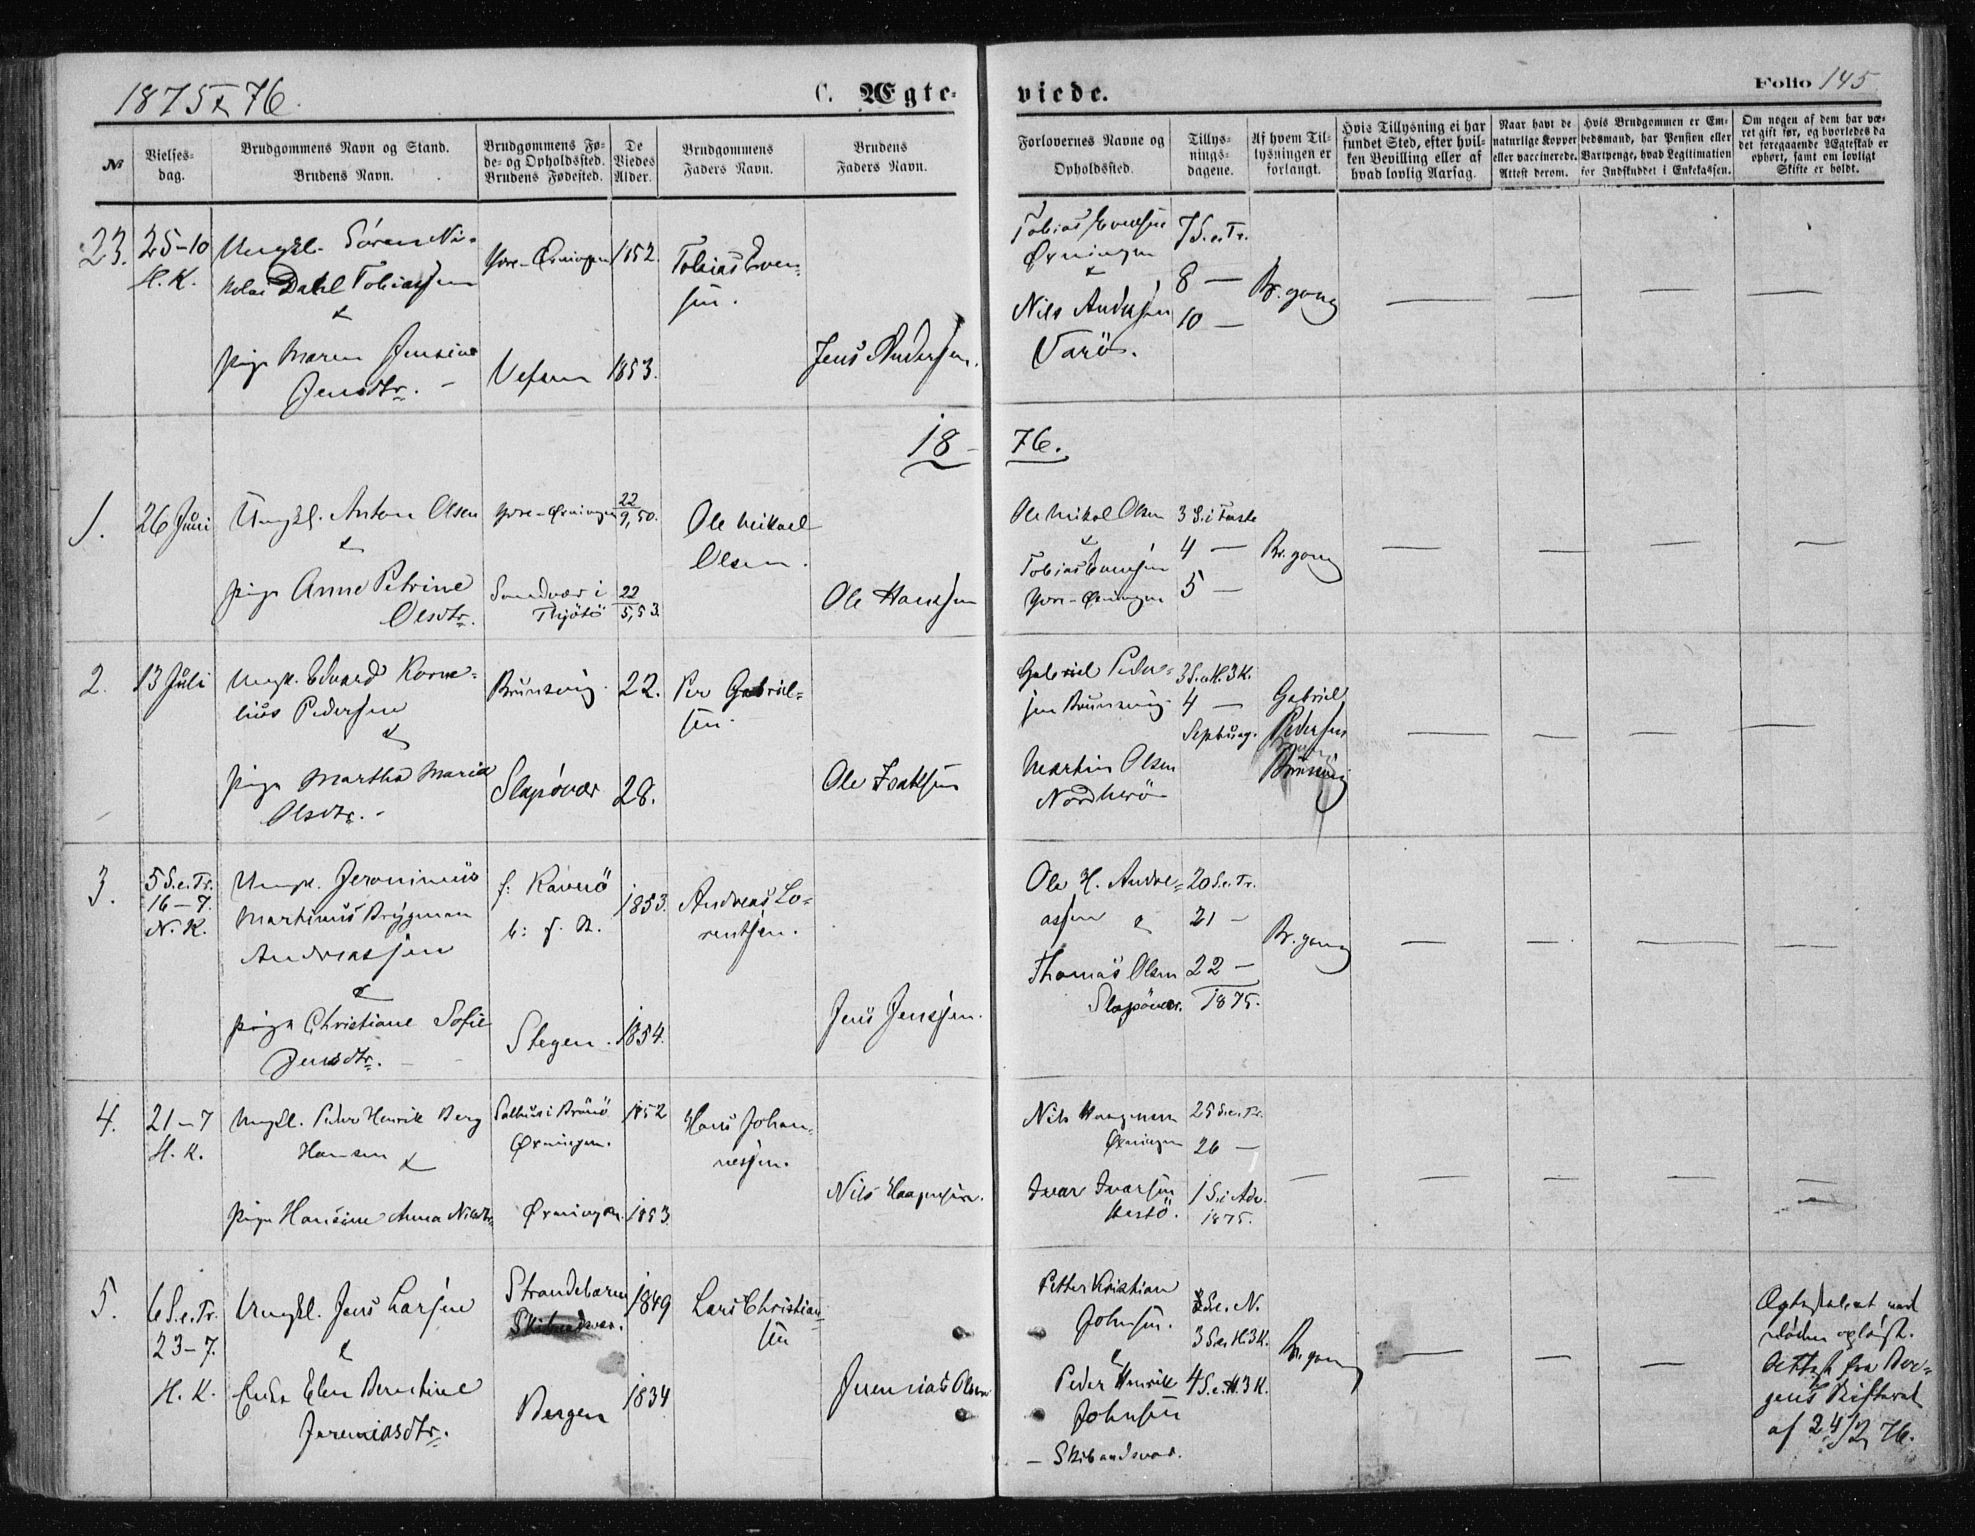 1875 & 76.
C. Ægteviede.
Folio 145
No
Vielsesdag.
Brudgommens Navn og Stand.
Brudens Navn.
Brudgommens Føde- og Opholdssted.
Brudens Fødested.
De Viedes Alder.
Brudgommens Faders Navn.
Brudens Faders Navn.
Forlovernes Navne og Opholdssted.
Tillysningsdagene.
Af hvem Tillysningen er forlangt.
Hvis Tillysning ei har fundet Sted, efter hvilken Bevilling eller af hvad lovlig Aarsag.
Naar havt de naturlige Kopper eller vaccinerede. Attest derom.
Hvis Brudgommen er Embedsmand, har Pension eller Vartpenge, hvad Legitimation for Indskuddet i Enkekassen.
Om nogen af dem har været gift før, og hvorledes da det foregaaende Ægteskab er ophørt, samt om lovligt Skifte er holdt.
23.
25-10
H. K.
Ungkl. Søren Ni-
kolai Dahl Tobiassen
&
pige Maren Jensine
Jensdtr. -
Yvre-Øxningen
Vefsen
1852.
1853.
Tobias Even-
sen.
Jens Andersen.
Tobias Evensen
Øxningen
&
Nils Andersen
Varö.
7 S. e. Tr.
8 —
10 —
Br. gom
18-76.
1.
26 Juni
Ungkl. Anton Olsen
&
pige Anne Petrine
Olsdtr.
Yvre-Øxningen
Sandvær i
Thjötö
22/9, 50.
22/5, 53.
Ole Mikael
Olsen.
Ole Hansen
Ole Mikal Olsen
&
Tobias Evensen
Yvre-Øxningen
3 S. i Faste
4 —
5 —
Br. gom
2.
13 Juli
Ungk. Edvard Korne-
lius Pedersen
&
pige Martha Maria
Olsdtr. -
Brunsvig.
Slapövær
22.
28.
Per Gabriel-
sen.
Ole Isaksen
Gabriel Peder-
sen Brunsvig.
Martin Olsen
Nordherö
3 S. e. H. 3 K.
4 —
Septuag.
Gabriel
Pedersen
Brunsvig
3.
5 S. e. Tr.
16-7.
N. K.
Ungk. Jeronimus
Martinus Brygman
Andreassen
&
pige Christiane Sofie
Jensdtr. -
f: Ravnö
b: f. St.
Stegen.
1853.
1854.
Andreas Lo-
rentsen.
Jens Jenssen.
Ole H. Andre-
assen &
Thomas Olsen
Slapövær.
20 S. e. Tr.
21 —
22 —
1875.
Br. gom
4.
21-7
H. K.
Ungkl. Peder Henrik Berg
Hansen &
pige Hansine Anna Nilsdtr.
Salhus i Brönö
Øxningen.
Øxningen.
1852
1853.
Hans Johan-
nessen.
Nils Haagensen.
Nils Haagensen
Øxningen
Ivar Ivarsen
Hestö.
25 S. e. Tr.
26 —
1 S. i Adv.
1875.
5.
6 S. e. Tr.
23-7.
H. K.
Ungkl. Jens Larsen
&
Enke Elen Berntine
Jeremiasdtr.
Strandebarm
Skibaadsvær.
Bergen
1849
1834
Lars Christian-
sen
Jeremias Olsen
Petter Kristian
Johnsen.
&
Peder Henrik
Johnsen
— Skibaadsvær.
S. e. N.
3 S. e. H. 3 K.
4 S. e. H. 3 K.
Br. gom
Ægteskabet ved
döden oplöst.
Attest fra Ber-
gens Skifteret
af 24/2 76.